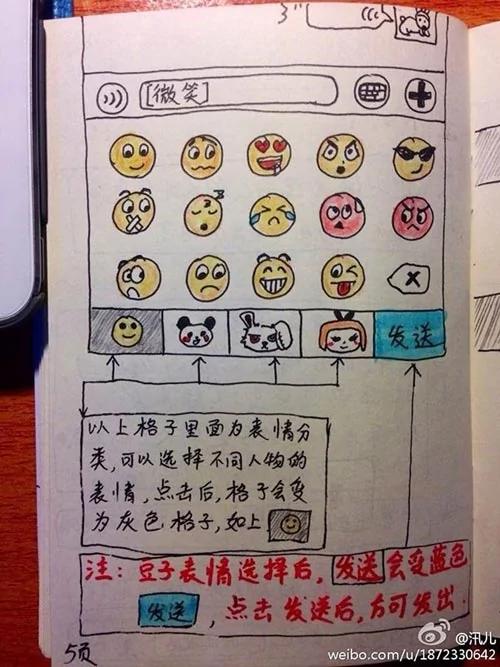 3"
[微笑]
发送
以上格子里面为表情分
类,可以选择不同人物的
表情,点击后,格子会变
为灰色格子,如上
注:豆子表情选择后,发送会变蓝色
发送,点击发送后,方可发出.
5页
@汛儿
weibo.com/u/1872330642